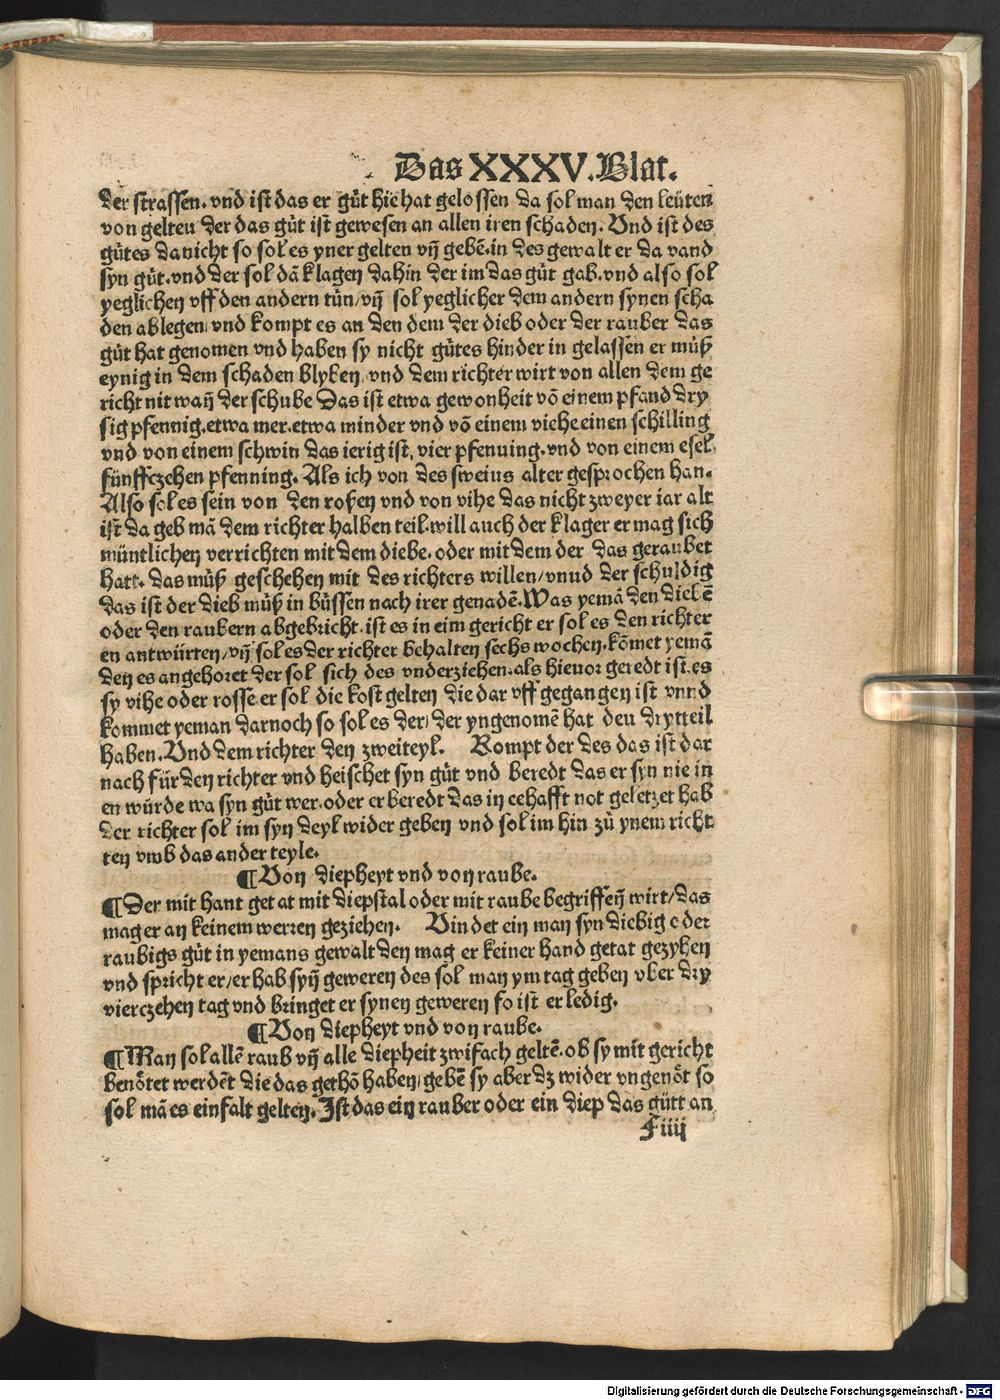 Das XXXV. Blat.
der strassen. vnd ist das er gůt hie hat gelossen da sol man den leüten
von gelteu der das gůt ist gewesen an allen iren schaden. Vnd ist des
gůtes da nicht so sol es yner gelten vñ gebē. in des gewalt er da vand
syn gůt. vnd der sol dā klagen dahin der im das gůt gab. vnd also sol
yeglichen vff den andern tůn/vñ sol yeglicher dem andern synen scha
den ablegen/ vnd kompt es an den dem der dieb oder der rauber das
gůt hat genomen vnd haben sy nicht gůtes hinder in gelassen er můß
eynig in dem schaden blyben/ vnd dem richter wirt von allen dem ge
richt nit wañ der schube Das ist etwa gewonheit vō einem pfand dry
sig pfennig. etwa mer. etwa minder vnd vō einem viehe einen schilling
vnd von einem schwin das ierig ist, vier pfenuing. vnd von einem esel
fünffczehen pfenning. Als ich von des sweius alter gesprochen han.
Also sol es sein von den roßen vnd von vihe das nicht zweyer iar alt
ist da geb mā dem richter halben teil. will auch der klager er mag sich
müntlichen verrichten mit dem diebe. oder mit dem der das geraubet
hatt. das můß geschehen mit des richters willen/vnud der schuldig
das ist der dieb můß in büssen nach irer genadē. Was yemā den diebē
oder den raubern abgebricht. ist es in eim gericht er sol es den richter
en antwürten/vñ sol es der richter behalten sechs wochen. kōmet yemā
den es angehoret der sol sich des vnderziehen. als hieuor geredt ist. es
sy vihe oder rosse er sol die kost gelten die dar vff gegangen ist vnnd
kommet yeman darnoch so sol es der/ der yngenomē hat deu drytteil
haben. Vnd dem richter den zweiteyl. Kompt der des das ist dar
nach für den richter vnd heischet syn gůt vnd beredt das er syn nie in
en würde wa syn gůt wer. oder er beredt das in eehafft not geletzet hab
der richter sol im syn deyl wider geben vnd sol im hin zů ynem richt
ten vmb das ander teyle.
¶ Von diepheyt vnd von raube.
¶ Der mit hant getat mit diepstal oder mit raube begriffeñ wirt/das
mag er an keinem werren geziehen. Vindet ein man syn diebig oder
raubigs gůt in yemans gewalt den mag er keiner hand getat gezyhen
vnd spricht er/er hab syñ geweren des sol man ym tag geben vber dry
vierczehen tag vnd bringet er synen geweren so ist er ledig.
¶ Von diepheyt vnd von raube.
¶ Man sol allē raub vñ alle diepheit zwifach geltē. ob sy mit gericht
benötet werdēt die das gethō haben/ gebē sy aber dz wider vngenöt so
sol mā es einfalt gelten. Ist das ein rauber oder ein diep das gütt an
F iiij
Digitalisierung gefördert durch die Deutsche Forschungsgemeinschaft - DFG